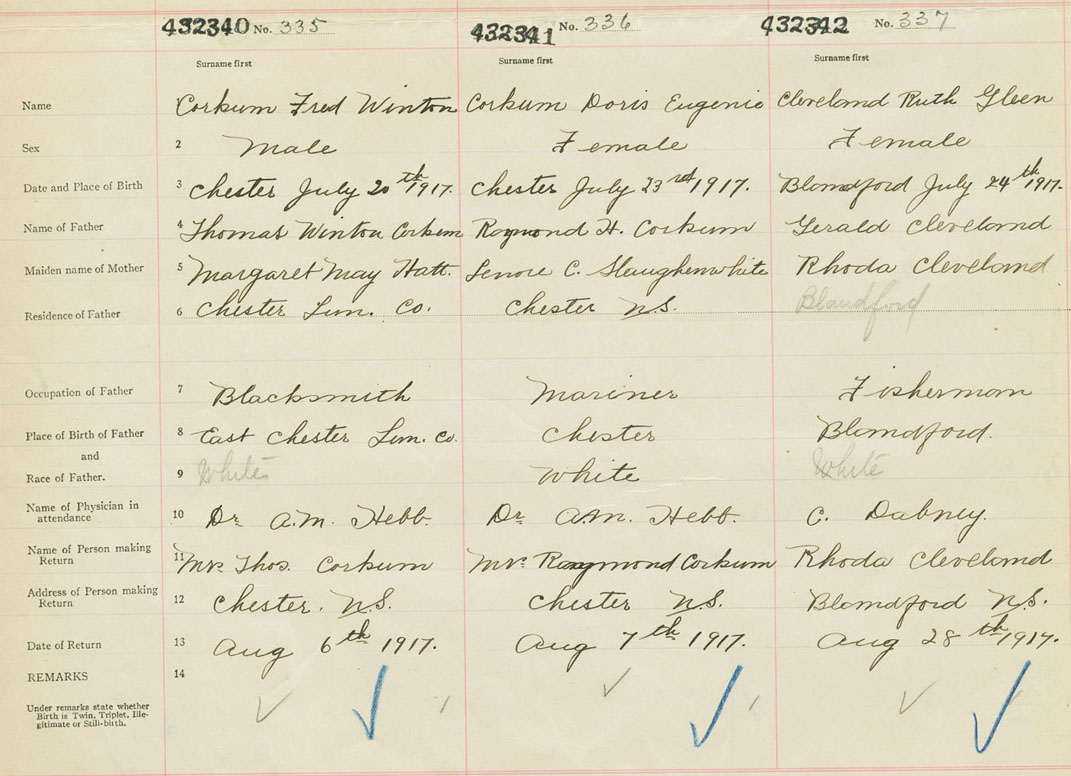 432340 No. 335 432341 No. 336 432342 No. 337
Surname first Surname first Surname first
Name Corkum Fred Winton Corkum Doris Eugenie Cleveland Ruth Gleen
Sex 2 Male Female Female
Date and Place of Birth 3 Chester July 20th 1917. Chester July 23rd 1917. Blandford July 24th 1917.
Name of Father 4 Thomas Winton Corkum Raymond H. Corkum Gerald Cleveland
Maiden name of Mother 5 Margaret May Hatt. Lenore C. Slaughenwhite Rhoda Cleveland
Residence of Father 6 Chester Lun. Co. Chester N.S. Blandford
Occupation of Father 7 Blacksmith Mariner Fisherman
Place of Birth of Father 8 East Chester Lun. Co. Chester Blandford.
and
Race of Father. 9 White White White
Name of Physician in
attendance 10 Dr A.M. Hebb. Dr A.M. Hebb. C. Dabney.
Name of Person making
Return 11 Mrs Thos. Corkum Mrs Raymond Corkum Rhoda Cleveland
Address of Person making
Return 12 Chester. N.S. Chester N.S. Blandford N.S.
Date of Return 13 Aug 6th 1917. Aug 7th 1917. Aug 28th 1917.
REMARKS 14
Under remarks state whether
Birth is Twin, Triplet, Ille-
gitimate or Still-birth.